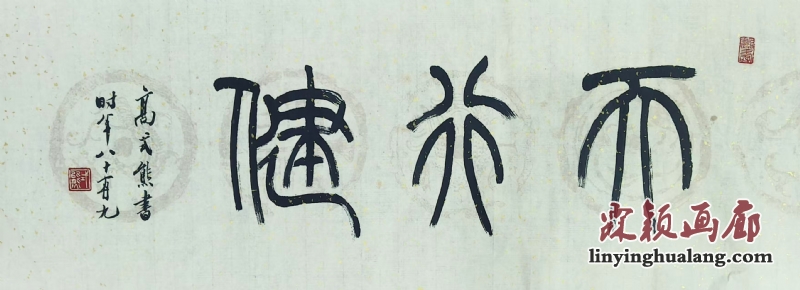 天行健
高式熊书
时年八十有九
霖颖画廊
linyinghualang.com